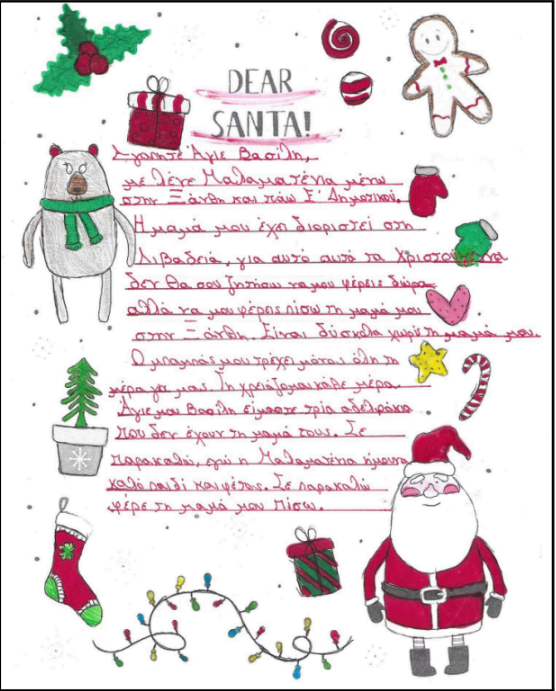 DEAR
SANTA!
Αγαπητέ Άγιε Βασίλη,
με λένε Μαλαματένια μένω
στην Ξάνθη και πάω Ε' Δημοτικού.
Η μαμά μου έχει διοριστεί στη
Λιβαδειά, για αυτό αυτά τα Χριστούγεννα
δεν θα σου ζητήσω να μου φέρεις δώρα
αλλά να μου φέρεις πίσω τη μαμά μου
στην Ξάνθη. Είναι δύσκολα χωρίς τη μαμά μου.
Ο μπαμπάς μου τρέχει μόνος όλη τη
μέρα για μας. Τη χρειάζομαι κάθε μέρα.
Άγιε μου Βασίλη είμαστε τρία αδελφάκια
που δεν έχουν τη μαμά τους. Σε
παρακαλώ, εγώ η Μαλαματένια ήμουνα
καλό παιδί και φέτος. Σε παρακαλώ
φέρε τη μαμά μου πίσω.